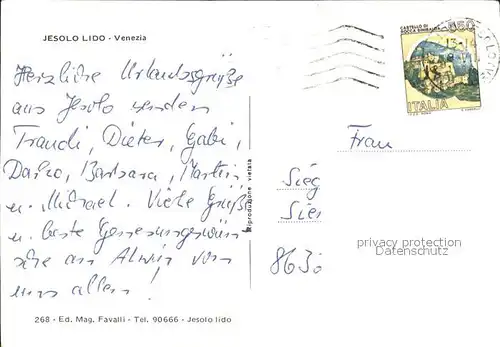 JESOLO LIDO - Venezia
Herzliche Urlaubsgrüße
aus Jesolo senden
Traudi, Dieter, Gabi,
Barbara, Martin
u. Michael. Viele Grüße
u. beste Genesungswün
sche an Alwin von
uns allen!
268 - Ed. Mag. Favalli - Tel. 90666 - Jesolo lido
Riproduzione vietata
CASTELLO DI
650
ITALIA
Frau
Sieg
8630
privacy protection
for AKPool members